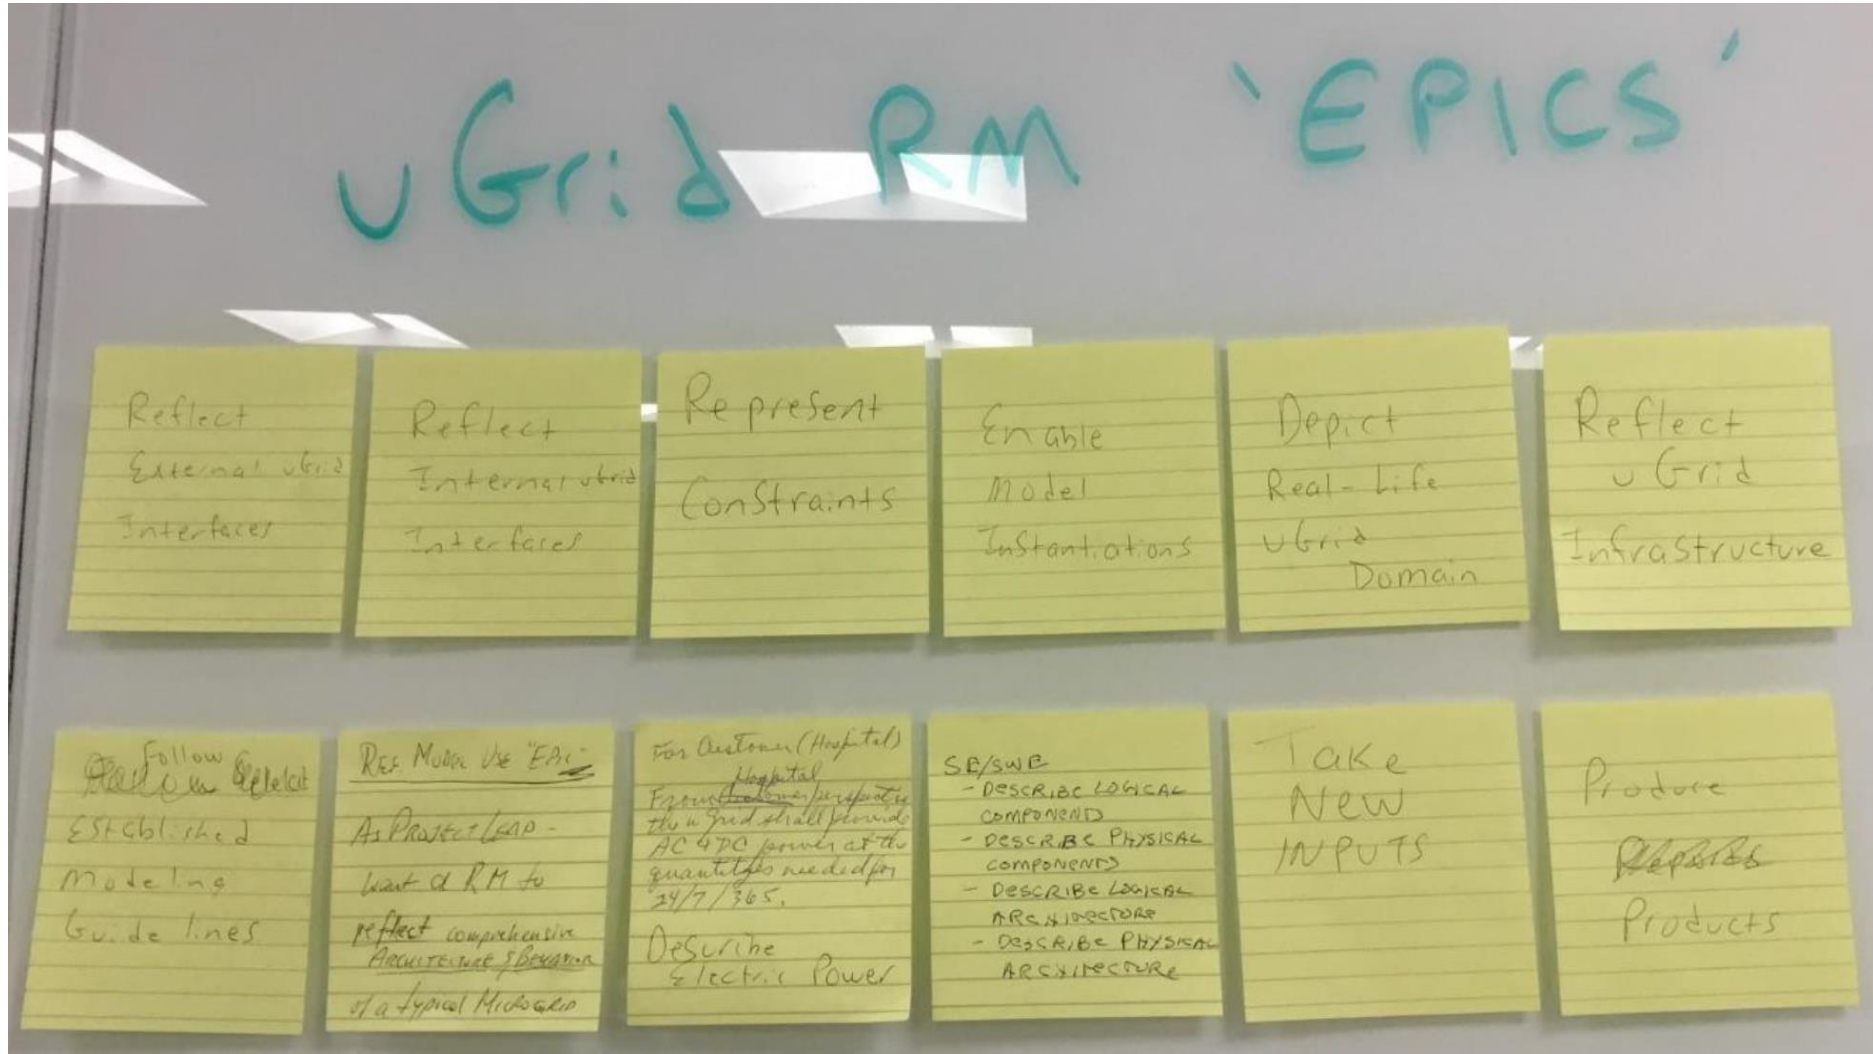 uGrid RM 'EPICS'
Reflect
External uGrid
Interfaces
Reflect
Internal uGrid
Interfaces
Represent
Constraints
Enable
Model
Instantiations
Depict
Real-Life
uGrid
Domain
Reflect
uGrid
Infrastructure
Follow
Established
Modeling
Guide lines
REF. MODEL USE "EPIC"
AS PROJECT LEAD -
want a RM to
reflect comprehensive
ARCHITECTURE & BEHAVIOR
of a typical MICROGRID
For Customer (Hospital)
Hospital
From perspective
the u grid shall provide
AC & DC power at the
quantities needed for
24/7/365.
Describe
Electric Power
SE/SWE
- DESCRIBE LOGICAL
COMPONENTS
- DESCRIBE PHYSICAL
COMPONENTS
- DESCRIBE LOGICAL
ARCHITECTURE
- DESCRIBE PHYSICAL
ARCHITECTURE
Take
New
INPUTS
Produce
Products